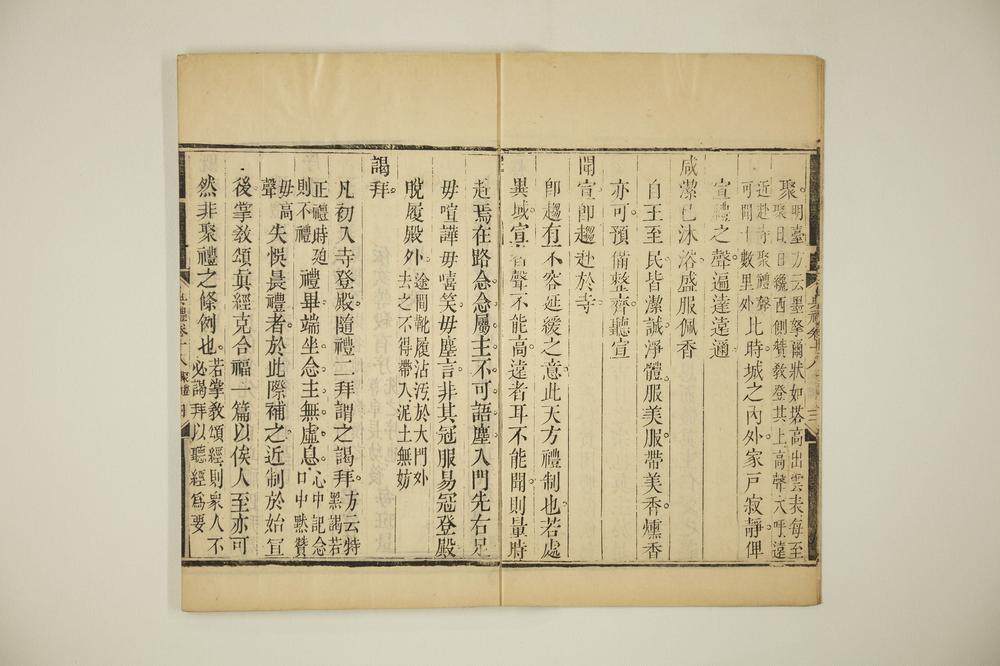 聚。明臺方云墨拏爾狀如塔高出雲表每至
聚日日纔西側贊教登其上高聲大呼遠
近赴寺聚禮聲
可聞十數里外比時城之內外家戶寂靜俾
宣禮之聲遍達遠邇
咸潔已沐浴盛服佩香
自王至民皆潔誠淨體服美服帶美香燻香
亦可預備整齊聽宣
聞宣卽趨赴於寺
卽趨有不容延緩之意此天方禮制也若處
異域宣者聲不能高遠者耳不能聞則量時
赴焉在路念念屬主不可語塵入門先右足
毋喧譁毋嘻笑毋塵言非其冠服易冠登殿
脫履殿外途間靴履沾污於大門外
去之不得帶入泥土無妨
謁拜
凡初入寺登殿隨禮二拜謂之謁拜方云特
黑謁若
正禮時廹
則不禮禮畢端坐念主無虛息心中記念
口中默贊
毋高
聲失悞晨禮者於此際補之近制於始宣
後掌教頌眞經克合福一篇以俟人至亦可
然非聚禮之條例也若掌教頌經則衆人不
必謁拜以聽經爲要
典禮卷十八 聚禮